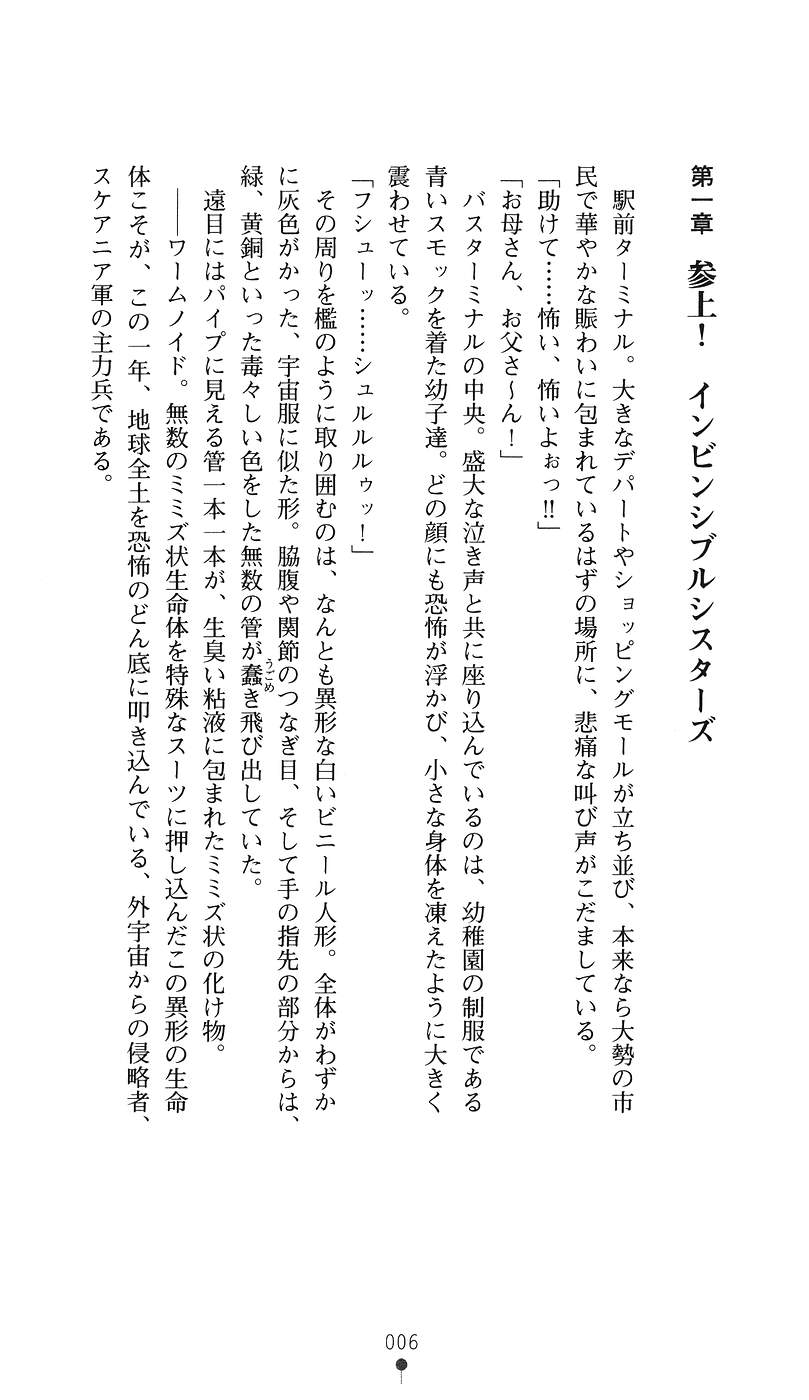 第一章　参上！　インビンシブルシスターズ
駅前ターミナル。大きなデパートやショッピングモールが立ち並び、本来なら大勢の市
民で華やかな賑わいに包まれているはずの場所に、悲痛な叫び声がこだましている。
「助けて……怖い、怖いよぉっ!!」
「お母さん、お父さ～ん！」
バスターミナルの中央。盛大な泣き声と共に座り込んでいるのは、幼稚園の制服である
青いスモックを着た幼子達。どの顔にも恐怖が浮かび、小さな身体を凍えたように大きく
震わせている。
「フシューッ……シュルルルゥッ！」
その周りを檻のように取り囲むのは、なんとも異形な白いビニール人形。全体がわずか
に灰色がかった、宇宙服に似た形。脇腹や関節のつなぎ目、そして手の指先の部分からは、
緑、黄銅といった毒々しい色をした無数の管が蠢き飛び出していた。
うごめ
遠目にはパイプに見える管一本一本が、生臭い粘液に包まれたミミズ状の化け物。
――ワームノイド。無数のミミズ状生命体を特殊なスーツに押し込んだこの異形の生命
体こそが、この一年、地球全土を恐怖のどん底に叩き込んでいる、外宇宙からの侵略者、
スケアニア軍の主力兵である。
006